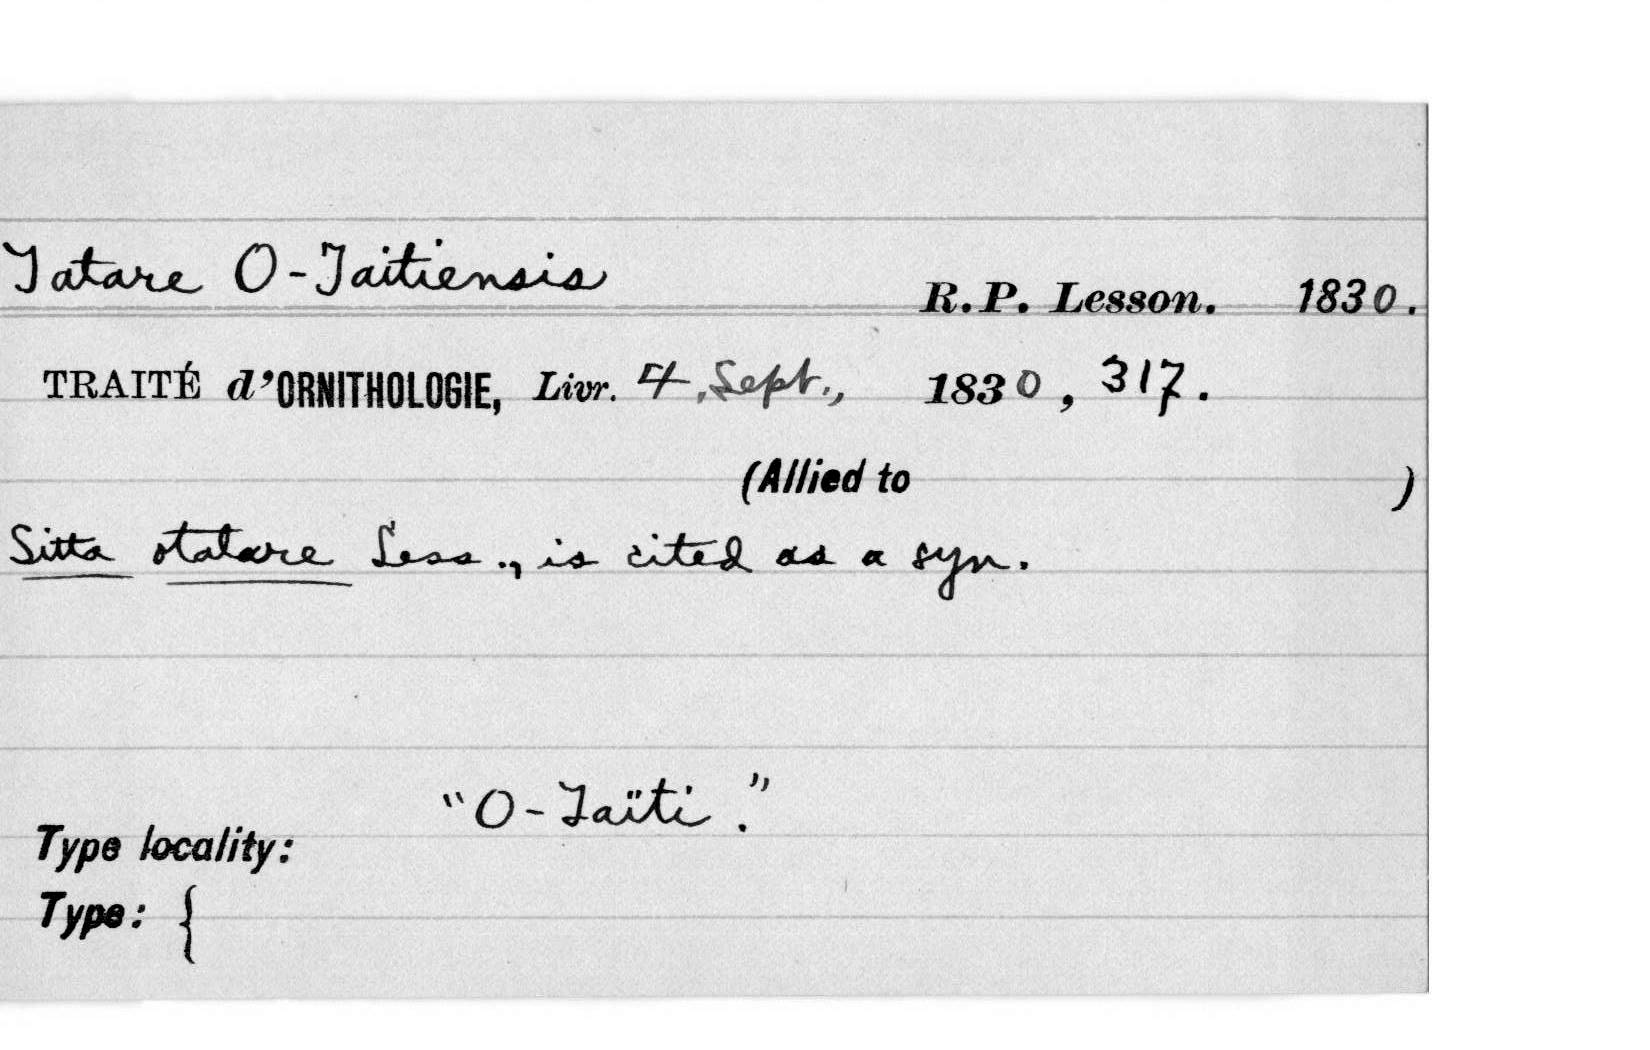 Tatare O-Taitiensis R.P. Lesson. 1830.
TRAITÉ d'ORNITHOLOGIE, Livr. 4, Sept., 1830, 317.
(Allied to )
Sitta otatare Less., is cited as a syn.
"O-Taïti."
Type locality:
Type: {